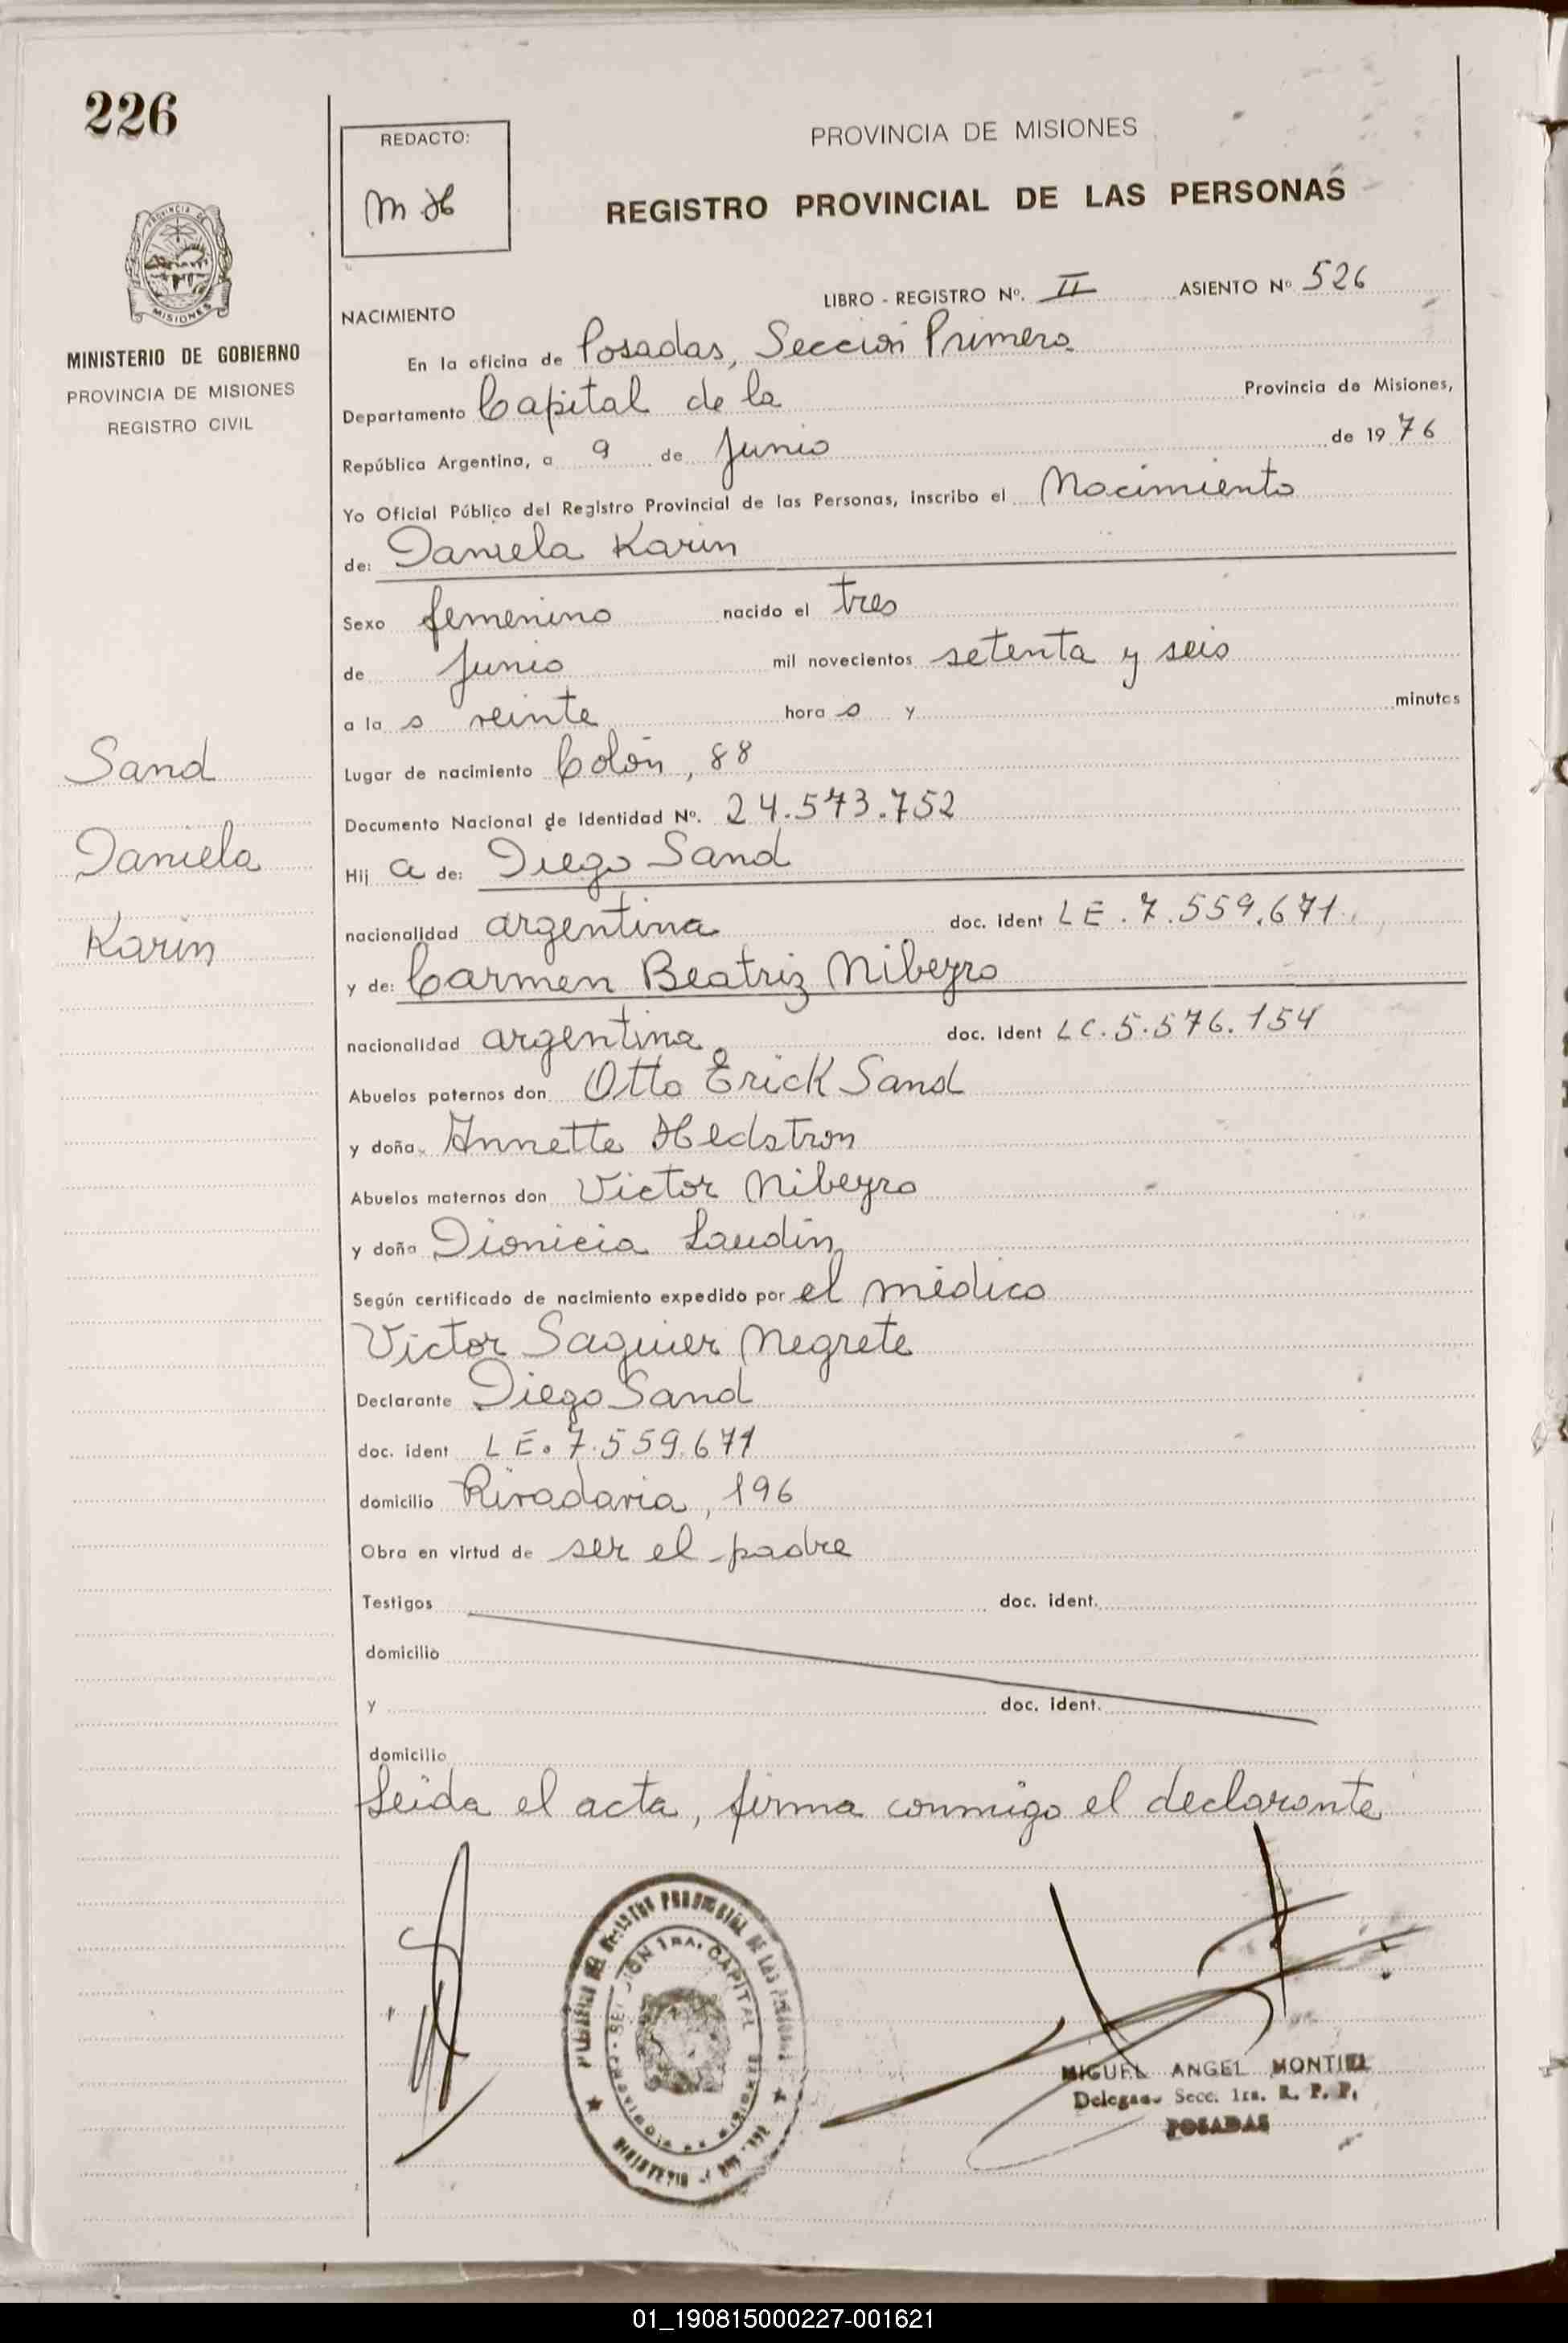 226
PROVINCIA DE MISIONES
MINISTERIO DE GOBIERNO
PROVINCIA DE MISIONES
REGISTRO CIVIL
Sand
Daniela
Karin
REDACTO:
PROVINCIA DE MISIONES
REGISTRO PROVINCIAL DE LAS PERSONAS
LIBRO - REGISTRO Nº. II ASIENTO Nº 526
NACIMIENTO
En la oficina de Posadas, Sección Primera
Departamento Capital de la Provincia de Misiones,
República Argentina, a 9 de Junio de 1976
Yo Oficial Público del Registro Provincial de las Personas, inscribo el Nacimiento
de: Daniela Karin
Sexo femenino nacido el tres
de Junio mil novecientos setenta y seis
a la s veinte hora s y minutos
Lugar de nacimiento Colón, 88
Documento Nacional de Identidad Nº. 24.573.752
Hij a de: Diego Sand
nacionalidad argentina doc. ident LE. 7.559.671
y de: Carmen Beatriz Nibeyro
nacionalidad argentina doc. ident LC. 5.576.154
Abuelos paternos don Otto Erick Sand
y doña Annette Hedstron
Abuelos maternos don Victor Nibeyro
y doña Dionicia Laudin
Según certificado de nacimiento expedido por el médico
Victor Saguier Negrete
Declarante Diego Sand
doc. ident LE. 7.559.671
domicilio Rivadavia, 196
Obra en virtud de ser el padre
Testigos doc. ident.
domicilio
y doc. ident.
domicilio
Leida el acta, firma conmigo el declarante
MIGUEL ANGEL MONTIEL
Delegado Secc. 1ra. R. P. P.
POSADAS
01_190815000227-001621